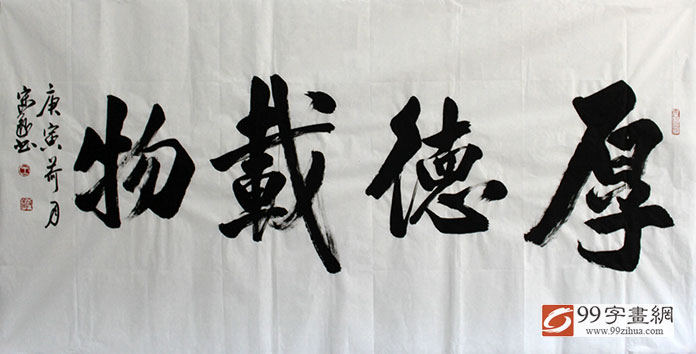 厚德載物
庚寅荷月
99字畫網
www.99zihua.com